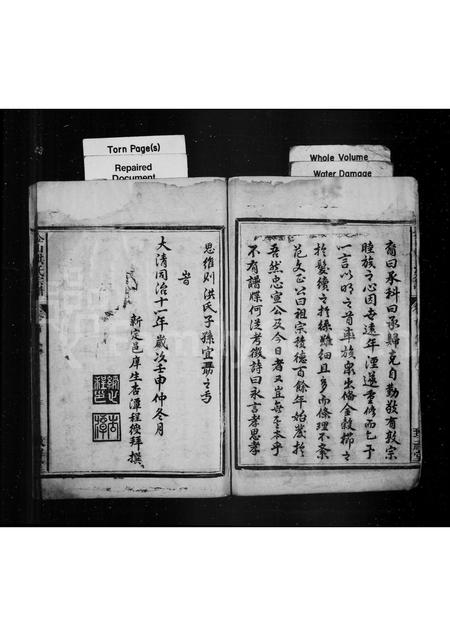 Torn Page(s)
Repaired
Document
Whole Volume
Water Damage
裔曰承科曰承歸克自勤敬有敦宗
睦族之心因世遠年湮遂重修而乞予
一言以明之首率族眾出備金穀柳之
於髮續之於絲雖細且多而條理不紊
范文正公曰祖宗積德百餘年始發於
吾然忠宣公及今日者又豈無本乎
不有譜牒何從考徵詩曰永言孝思孝
思維則洪氏子孫宜勗之丐
旹
大清同治十一年歲次壬申仲冬月
新定邑庠生杏潭程俊拜撰